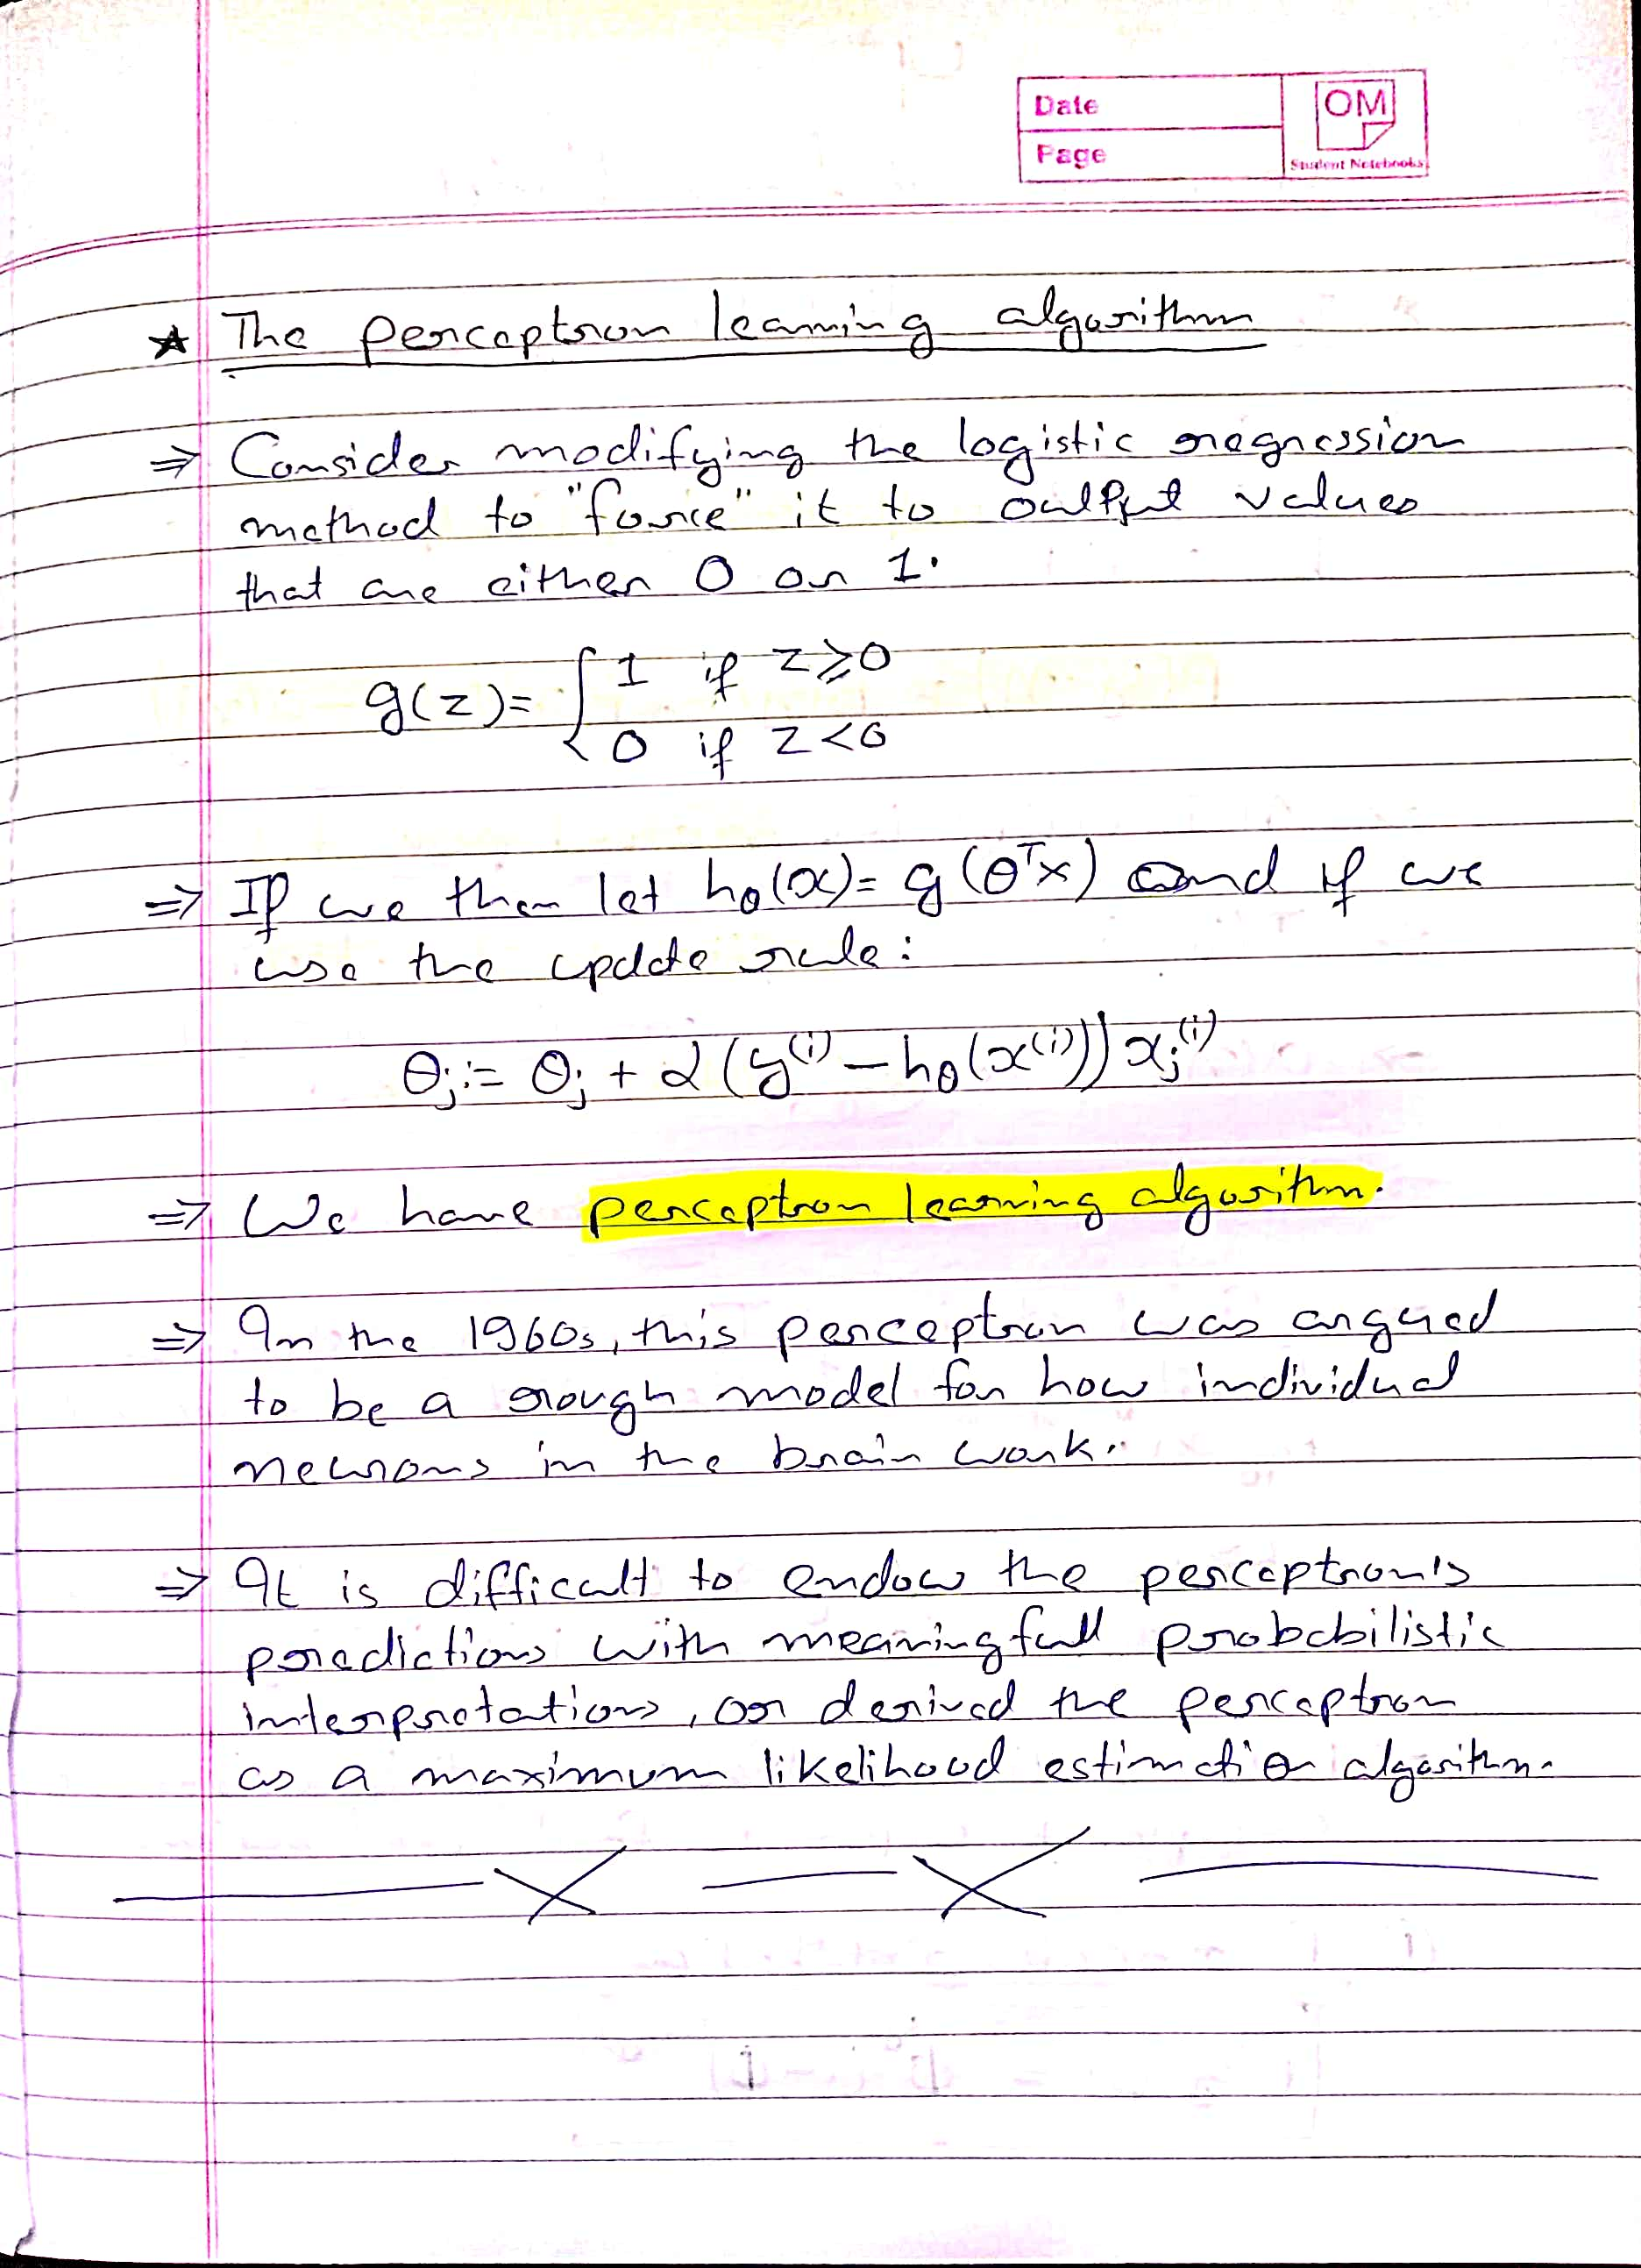 Date
Page
OM
Student Notebooks
★ The perceptron learning algorithm
⇒ Consider modifying the logistic regression
method to "force" it to output values
that are either 0 or 1.
g(z)= { 1 if z⩾0
0 if z<0
⇒ If we then let hθ(x)= g(θᵀx) and if we
use the update rule:
θj := θj + α (y⁽ⁱ⁾ – hθ(x⁽ⁱ⁾)) xj⁽ⁱ⁾
⇒ We have perceptron learning algorithm.
⇒ In the 1960s, this perceptron was argued
to be a rough model for how individual
neurons in the brain work.
⇒ It is difficult to endow the perceptron's
predictions with meaningfull probabilistic
interpretations, or derived the perceptron
as a maximum likelihood estimation algorithm.